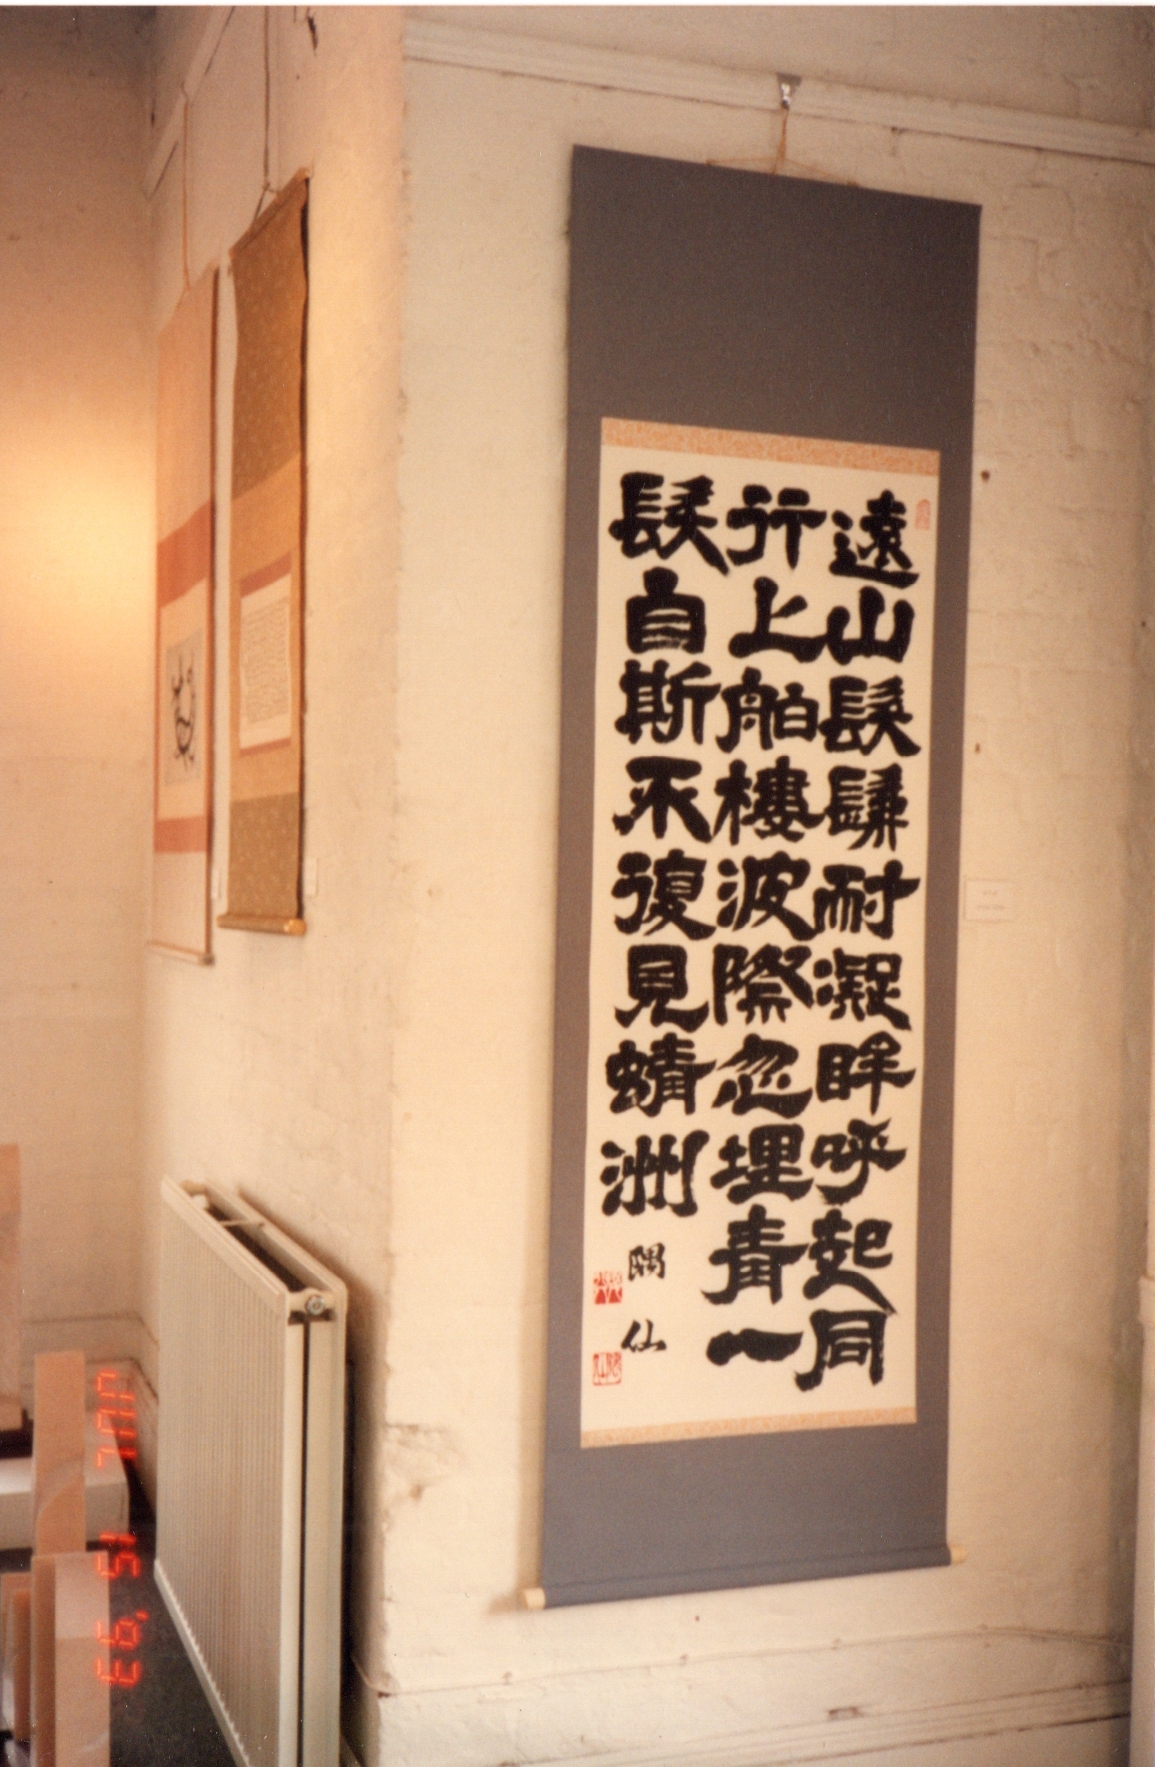 遠山髣髴耐凝眸呼起同
行上舶樓波際忽埋青一
髮自斯不復見蜻洲
隅仙
JUL 15 '93